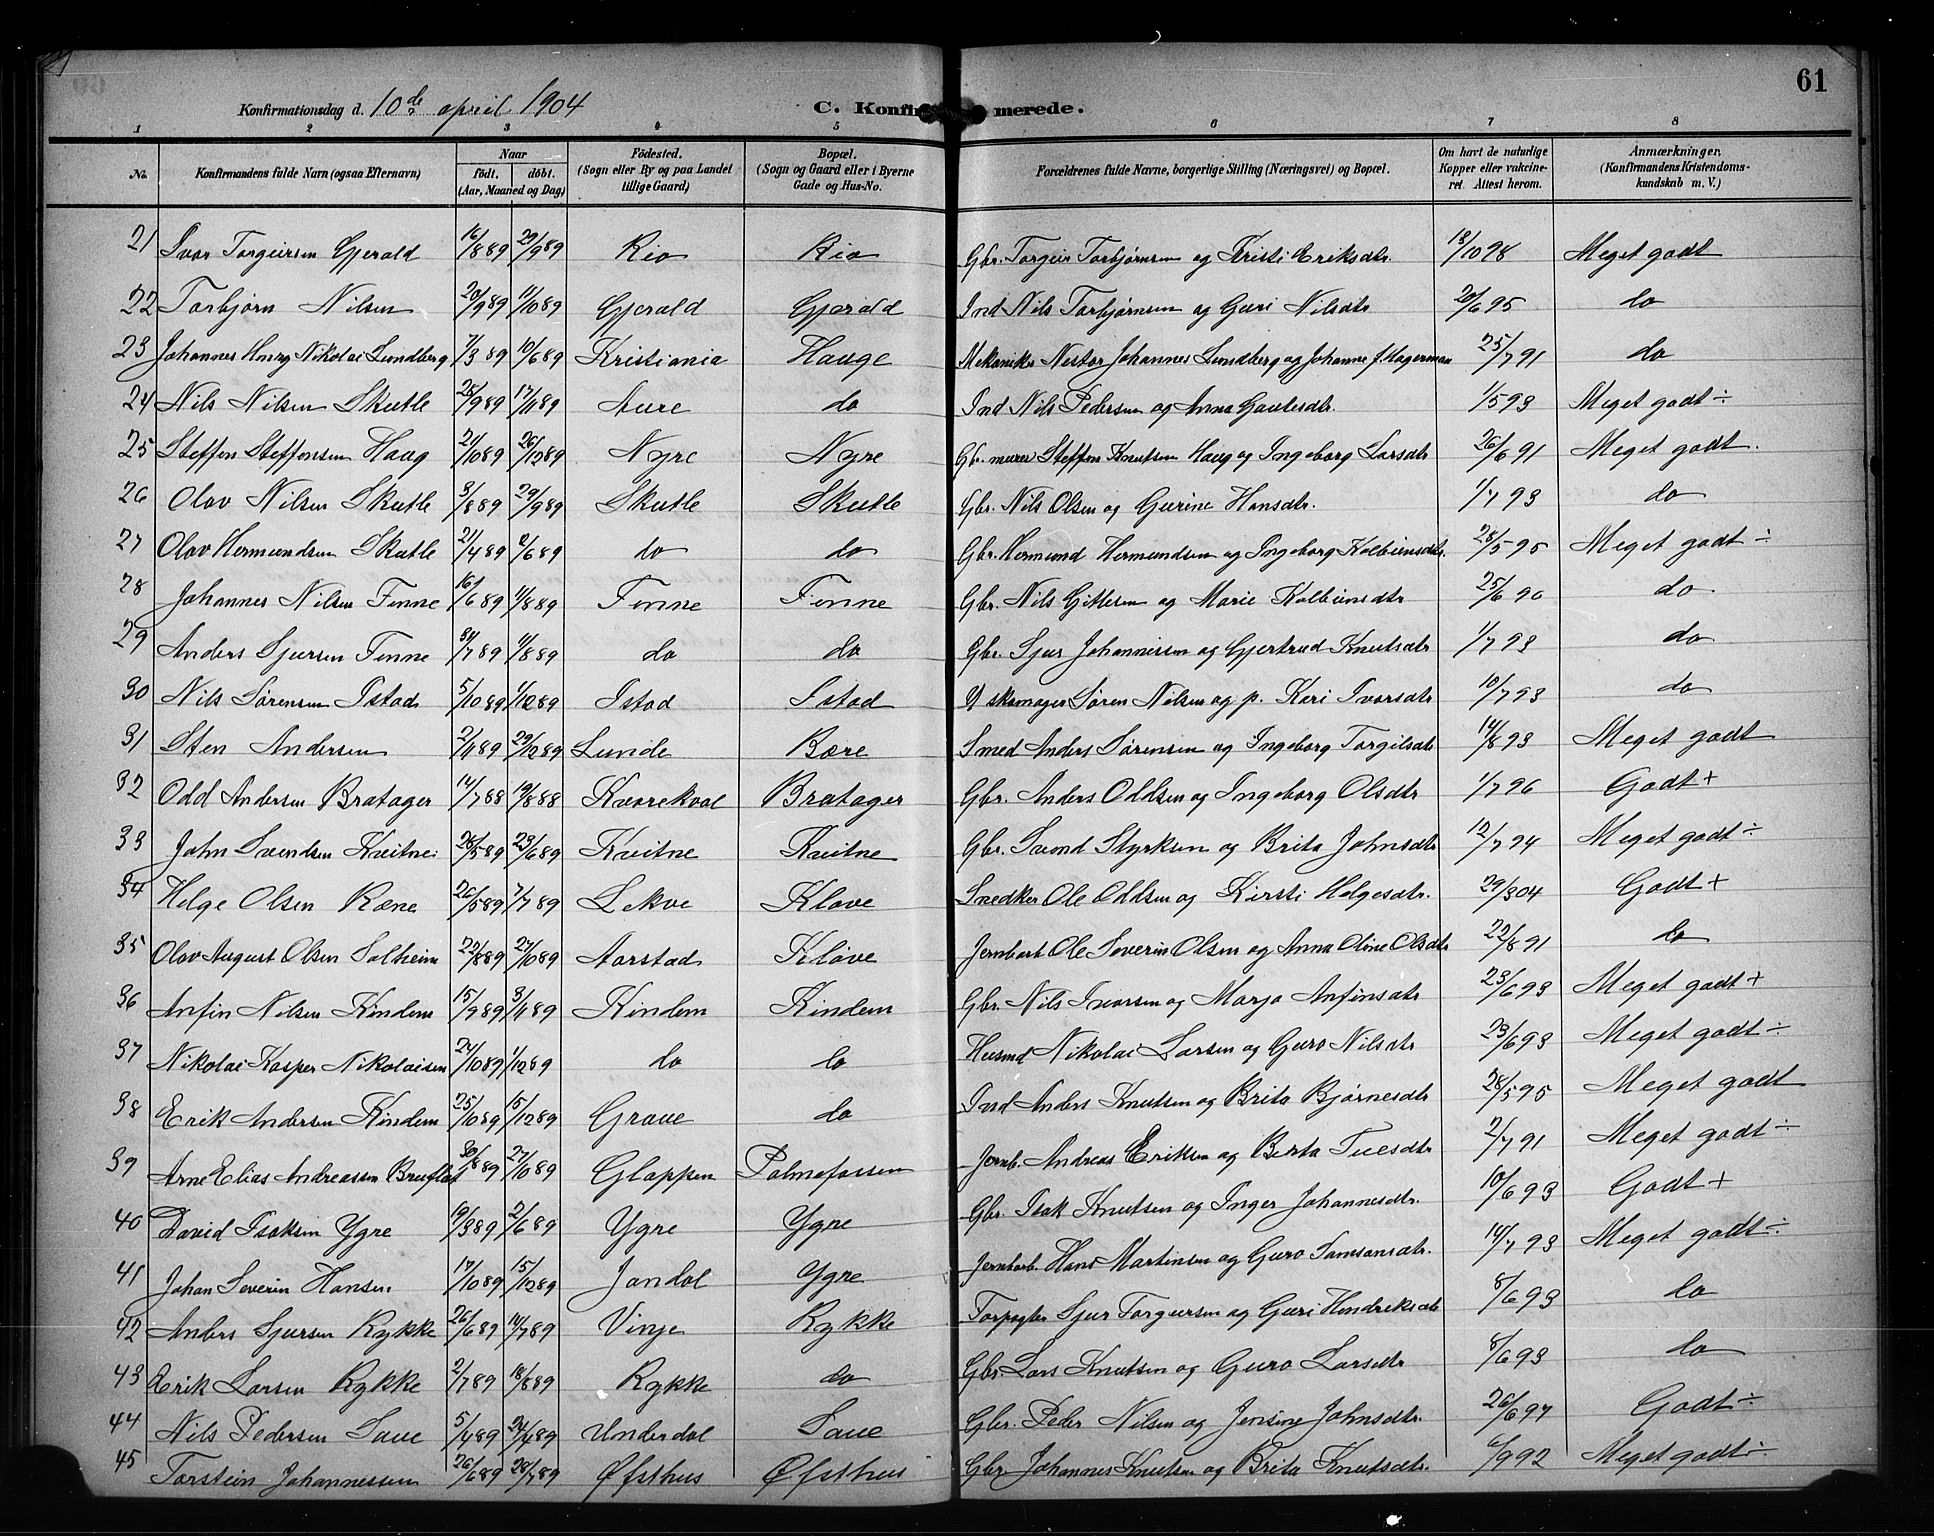 61
Konfirmationsdag d. 10de april 1904 C. Konfirmerede.
1 2 3 4 5 6 7 8
No. Konfirmandens fulde Navn (ogsaa Efternavn) Naar født. døbt. (Aar, Maaned og Dag) Fødested. (Sogn eller By og paa Landet tillige Gaard) Bopæl. (Sogn og Gaard eller i Byerne Gade og Hus-No. Forældrenes fulde Navne, borgerlige Stilling (Næringsvei) og Bopæl. Om havt de naturlige Kopper eller vakcineret. Attest herom. Anmærkninger. (Konfirmandens Kristendomskundskab m. V.)
21 Ivar Torgeirsen Gjerald 16/8 89 29/9 89 Rio Rio Gbr. Torgeir Torbjørnsen og Kristi Eriksdtr. 18/10 98 Meget godt
22 Torbjørn Nilsen 20/9 89 11/10 89 Gjerald Gjerald Ind Nils Torbjørnsen og Guri Nilsdtr 20/6 95 do
23 Johannes Henry Nikolai Lundberg 7/3 89 10/6 89 Kristiania Hauge Mekaniker Nestor Johannes Lundberg og Johanne f. Hagerman 25/7 91 do
24 Nils Nilsen Skutle 25/9 89 17/11 89 Aure do Ind Nils Pedersen og Anna Gautesdtr. 1/5 93 Meget godt ÷
25 Steffen Steffensen Haug 21/10 89 26/12 89 Nyre Nyre Gbr. murer Steffen Knutsen Haug og Ingeborg Larsdtr 26/6 91 Meget godt.
26 Olav Nilsen Skutle 3/8 89 29/9 89 Skutle Skutle Gbr. Nils Olsen og Gurine Hansdtr. 1/7 93 do
27 Olav Hermundsen Skutle 21/4 89 2/6 89 do do Gbr. Hermund Hermundsen og Ingeborg Kolbeinsdtr. 28/5 95 Meget godt ÷
28 Johannes Nilsen Finne 16/6 89 1/8 89 Finne Finne Gbr. Nils Gitlesen og Marie Kolbeinsdtr 25/6 90 do
29 Anders Sjursen Finne 31/7 89 11/8 89 do do Gbr. Sjur Johannessen og Gjertrud Knutsdtr 1/7 93 do
30 Nils Sørensen Istad 5/10 89 1/12 89 Istad Istad U skomager Søren Nilsen og p. Kari Ivarsdtr 10/7 93 do
31 Sten Andersen 2/11 89 29/12 89 Lunde Bære Smed Anders Sørensen og Ingeborg Torgilsdtr 14/8 93 Meget godt
32 Odd Andersen Bratager 14/7 88 19/8 88 Kvarekval Bratager Gbr. Anders Oddsen og Ingeborg Olsdtr 1/7 96 Godt +
33 John Svendsen Kvitne 28/5 89 23/6 89 Kvitne Kvitne Gbr. Svend Styrksen og Brita Johnsdtr 12/7 94 Meget godt ÷
34 Helge Olsen Rene 26/5 89 7/7 89 Lekve Kløve Snedker Ole Oddsen og Kirsti Helgesdtr. 29/3 04 Godt +
35 Olav August Olsen Solheim 22/8 89 27/10 89 Aarstad Kløve Jernbart Ole Severin Olsen og Anna Oline Olsdtr 22/8 91 do
36 Anfin Nilsen Kindem 15/9 89 3/11 89 Kindem Kindem Gbr. Nils Ivarsen og Marja Anfinsdtr 23/6 93 Meget godt +
37 Nikolai Kasper Nikolaisen 24/10 89 1/12 89 do do Husmd Nikolai Larsen og Guro Nilsdtr 23/6 93 Meget godt ÷
38 Erik Andersen Kindem 25/10 89 15/12 89 Graue do Ind Anders Knutsen og Brita Bjørnesdtr 28/5 95 Meget godt
39 Arne Elias Andreassen Breuflot 30/8 89 27/10 89 Glappen Palmefossen Jernb. Andreas Eriksen og Berta Tuesdtr 2/7 91 Meget godt ÷
40 David Isaksen Ygre 19/3 89 2/6 89 Ygre Ygre Gbr. Isak Knutsen og Inger Johannesdtr. 10/6 93 Godt +
41 Johan Severin Hansen 17/10 89 15/12 89 Jondal Ygre Jernbarb. Hans Martinsen og Guro Samsonsdtr. 14/7 93 Meget godt ÷
42 Anders Sjursen Rykke 26/6 89 14/7 89 Vinje Rykke Forpagter Sjur Torgersen og Guri Hendriksdtr 8/6 93 do
43 Erik Larsen Rykke 2/7 89 18/8 89 Rykke do Gbr. Lars Knutsen og Guro Larsdtr 8/6 93 do
44 Nils Pedersen Saue 5/4 89 24/4 89 Underdal Saue Gbr. Peder Nilsen og Jensine Johnsdtr. 26/6 97 Godt ÷
45 Torstein Johannessen 26/6 89 28/7 89 Øfsthus Øfsthus Gbr. Johannes Knutsen og Brita Knutsdtr. 6/9 92 Meget godt ÷